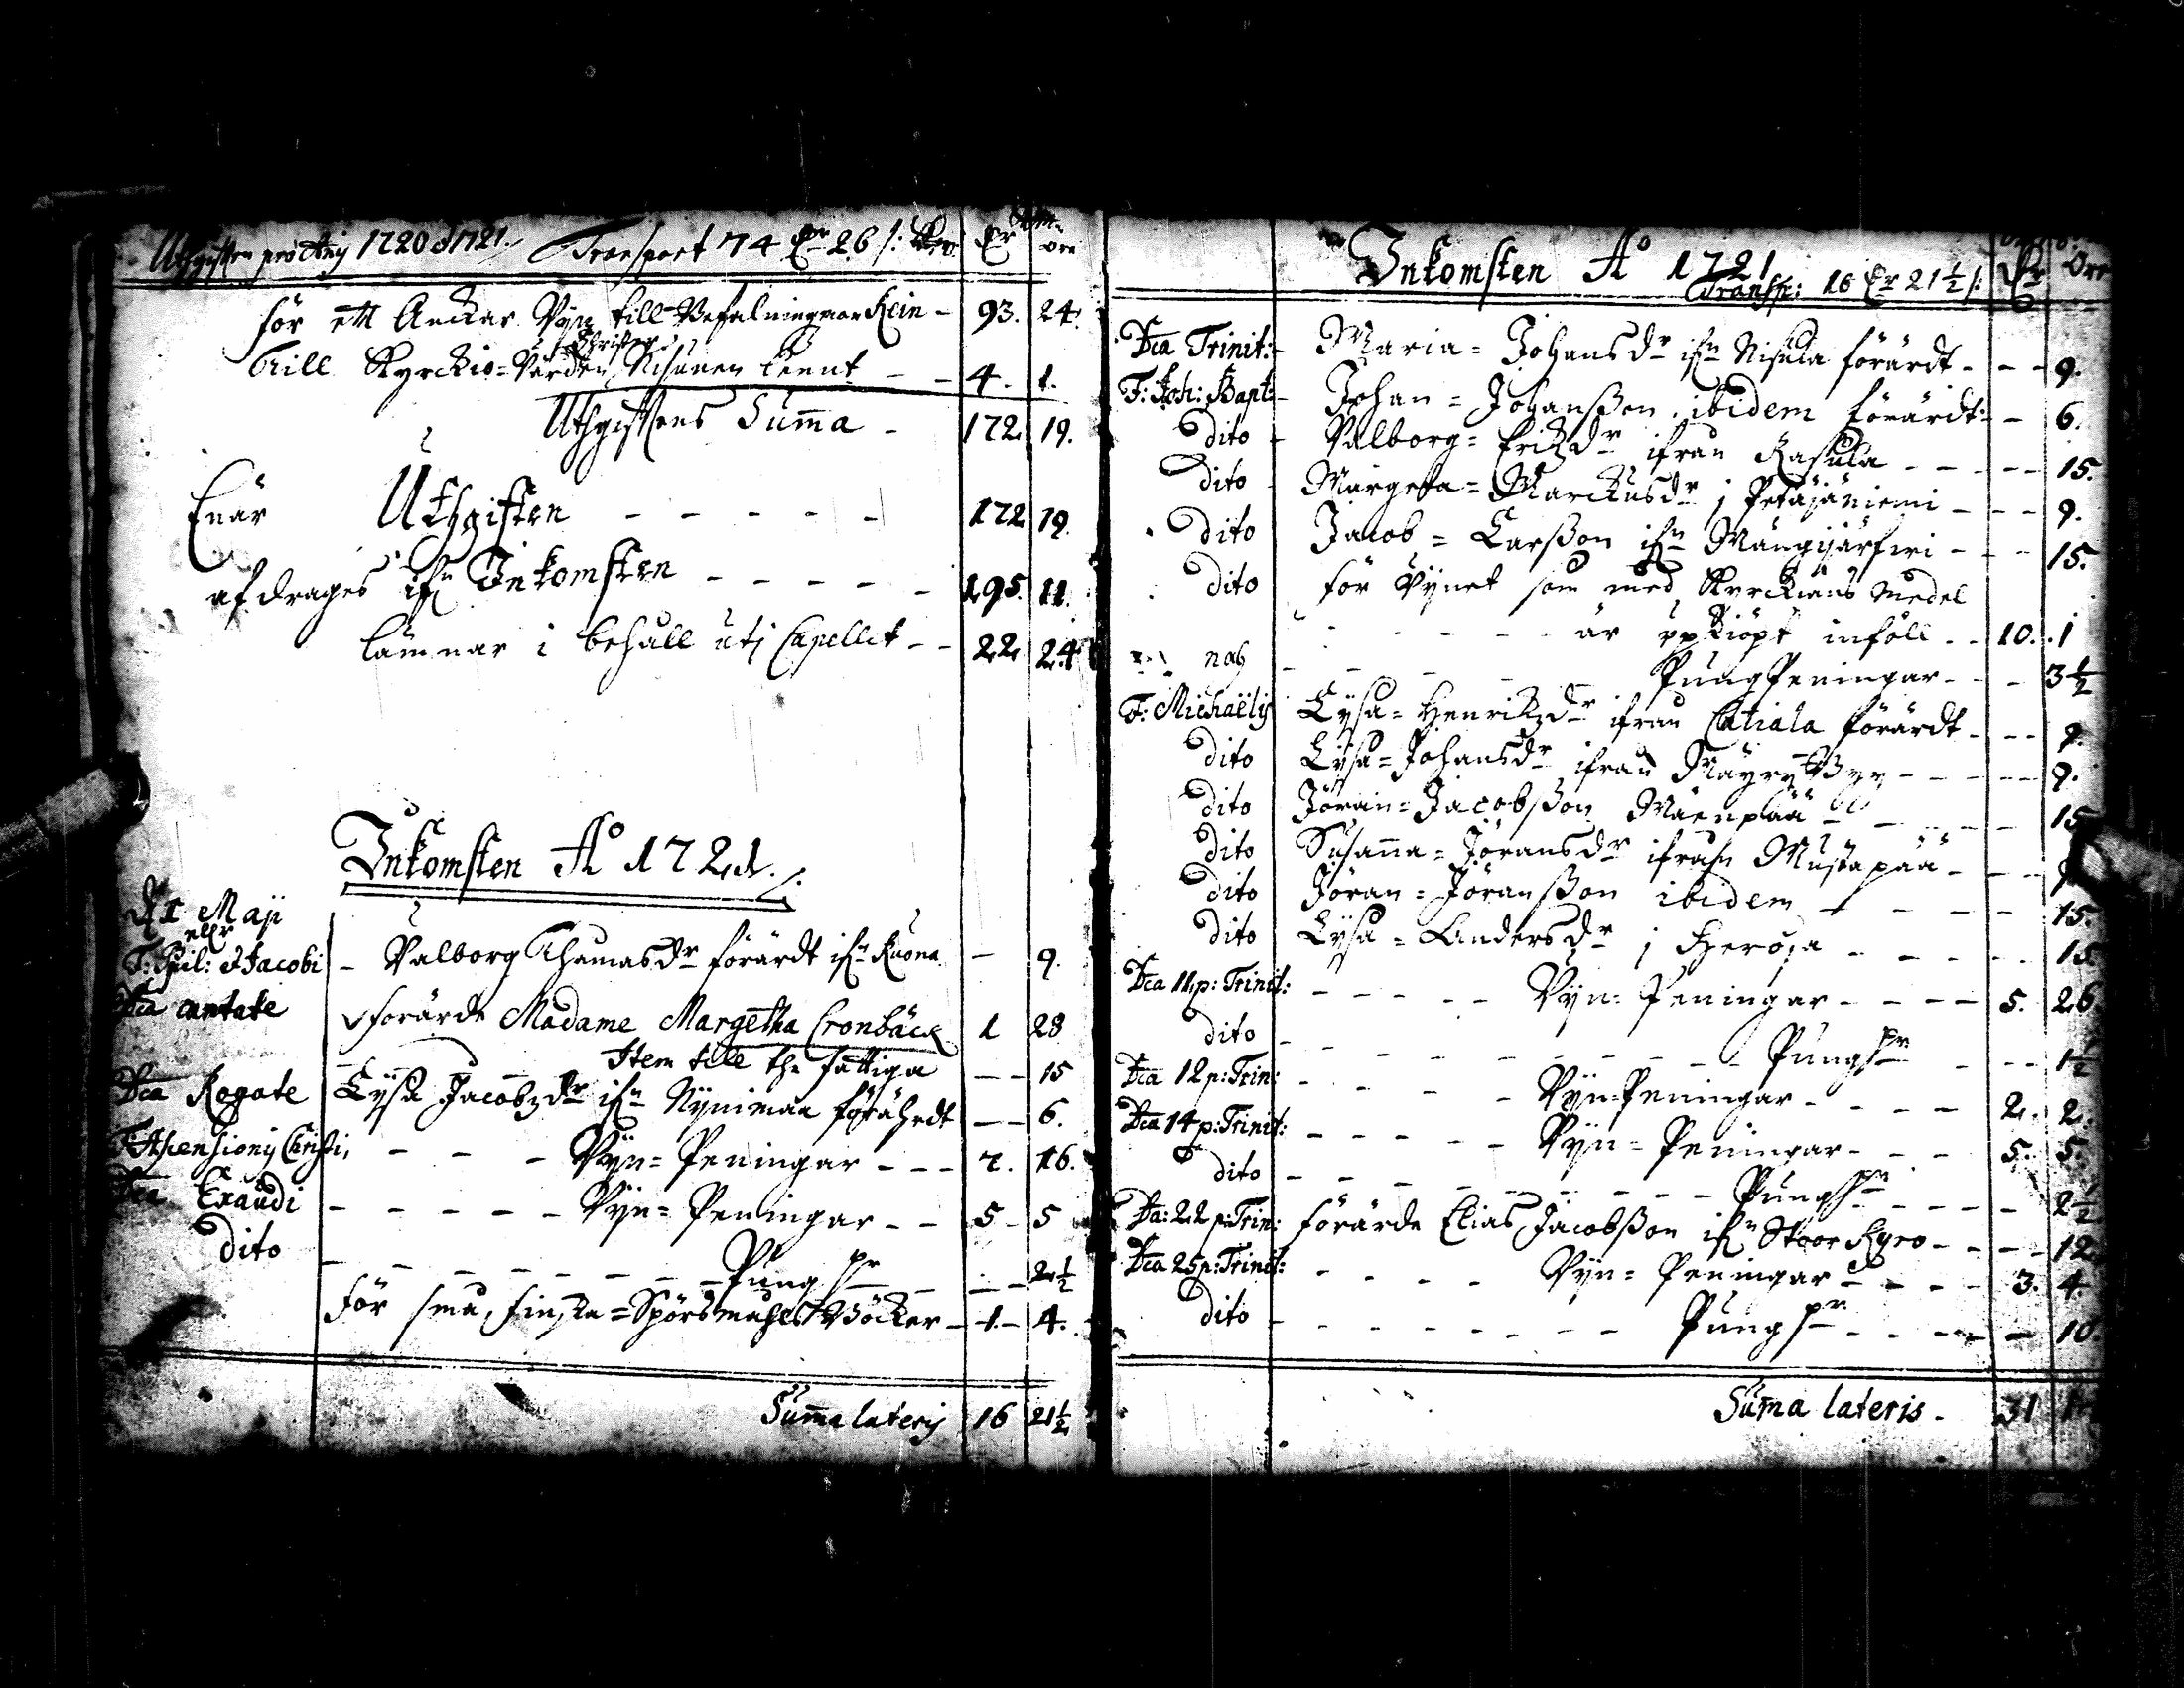 Uthgifften pro Anij 1720 & 1721. Transport 74 Dr 26 /:
Dr öre
för ett Anckar Vyn till Befalningzman Klein - 93. 24.
Christer
Till Kyrckio=Värden Nisunen lemt - - 4. 1.
Uthgifftens Suma - 172. 19.
Enär Uthgiften - - - - - 172 19.
afdrages ifn Inkomsten - - - - - 195. 11.
lämnar i behåll utj Capellet - - 22. 24
Inkomsten Ao 1721. /:
d 1 Maji
ellr
F: Phil: & Jacobi - Valborg Thamasdr förärdt ifn Kuona - 9.
Dca cantate förärde Madame Margetha Cronbäck 1 28
Item till the fattiga - - 15
Dca Rogate Lysa Jacobzdr ifn Nynimaa förährdt - - 6.
F. Ascensionis Christi, - - - Vyn=Peningar - - - 7. 16.
Dca Exaudi - - - - - Vyn=Peningar - - 5 - 5
dito - - - - - - - - Pungpr - - - 2½
för små finska=Spörsmåhls Böcker - 1. - 4.
Summa lateris 16 21½
Inkomsten Ao 1721
Transp: 16 Dr 21½ /: Dr Öre
Dca Trinit: - Maria=Johansdr ifn Nisula förärdt - - - 9.
F: Joh: Bapt: - Johan=Johanßon ibidem förärdt - - 6.
dito - Valborg=Erikzdr ifrån Rasula - - - - - 15.
dito - Margeta=Marckusdr j Petäjäniemi - - - 9.
dito Jacob=Larßon ifn Mängijärfwi - - - 15.
dito för Vynet som med Kyrckians medel
- - - - - är uppkiöpt inföll - - 10. 1
- - - - - PungPeningar - - - 3½
F: Michaëlis Lysa=Henrikzdr ifrån Catiala förärdt - - - 9.
dito Lysa=Johansdr ifrån Mäyry By - - - - - 9.
dito Jöran=Jacobßon Mäenpää - - - - - 15
dito Susanna=Jöransdr ifrån Mustapää - - -
dito Jöran=Jöranßon ibidem - - - - - 15.
dito Lysa=Andersdr j - - - - - 15
Dca 11 p: Trinit: - - - - - Vyn=Peningar - - - - 5. 26
dito - - - - - - - - - Pungpr - - - 1½
Dca 12 p: Trin: - - - - Vyn=Peningar - - - - 2. 2.
Dca 14 p: Trinit: - - - - - Vyn=Peningar - - - 5. 5.
dito - - - - - - - - - Pungpr - - - - 2½
Da: 22 p: Trin: förärde Elias Jacobßon ifn StoorKyro - - - - 12
Dca 25 p: Trinit: - - - - Vyn=Peningar - - - - 3. 4.
dito - - - - - - - - Pungpr - - - - - 10.
Suma lateris. 31